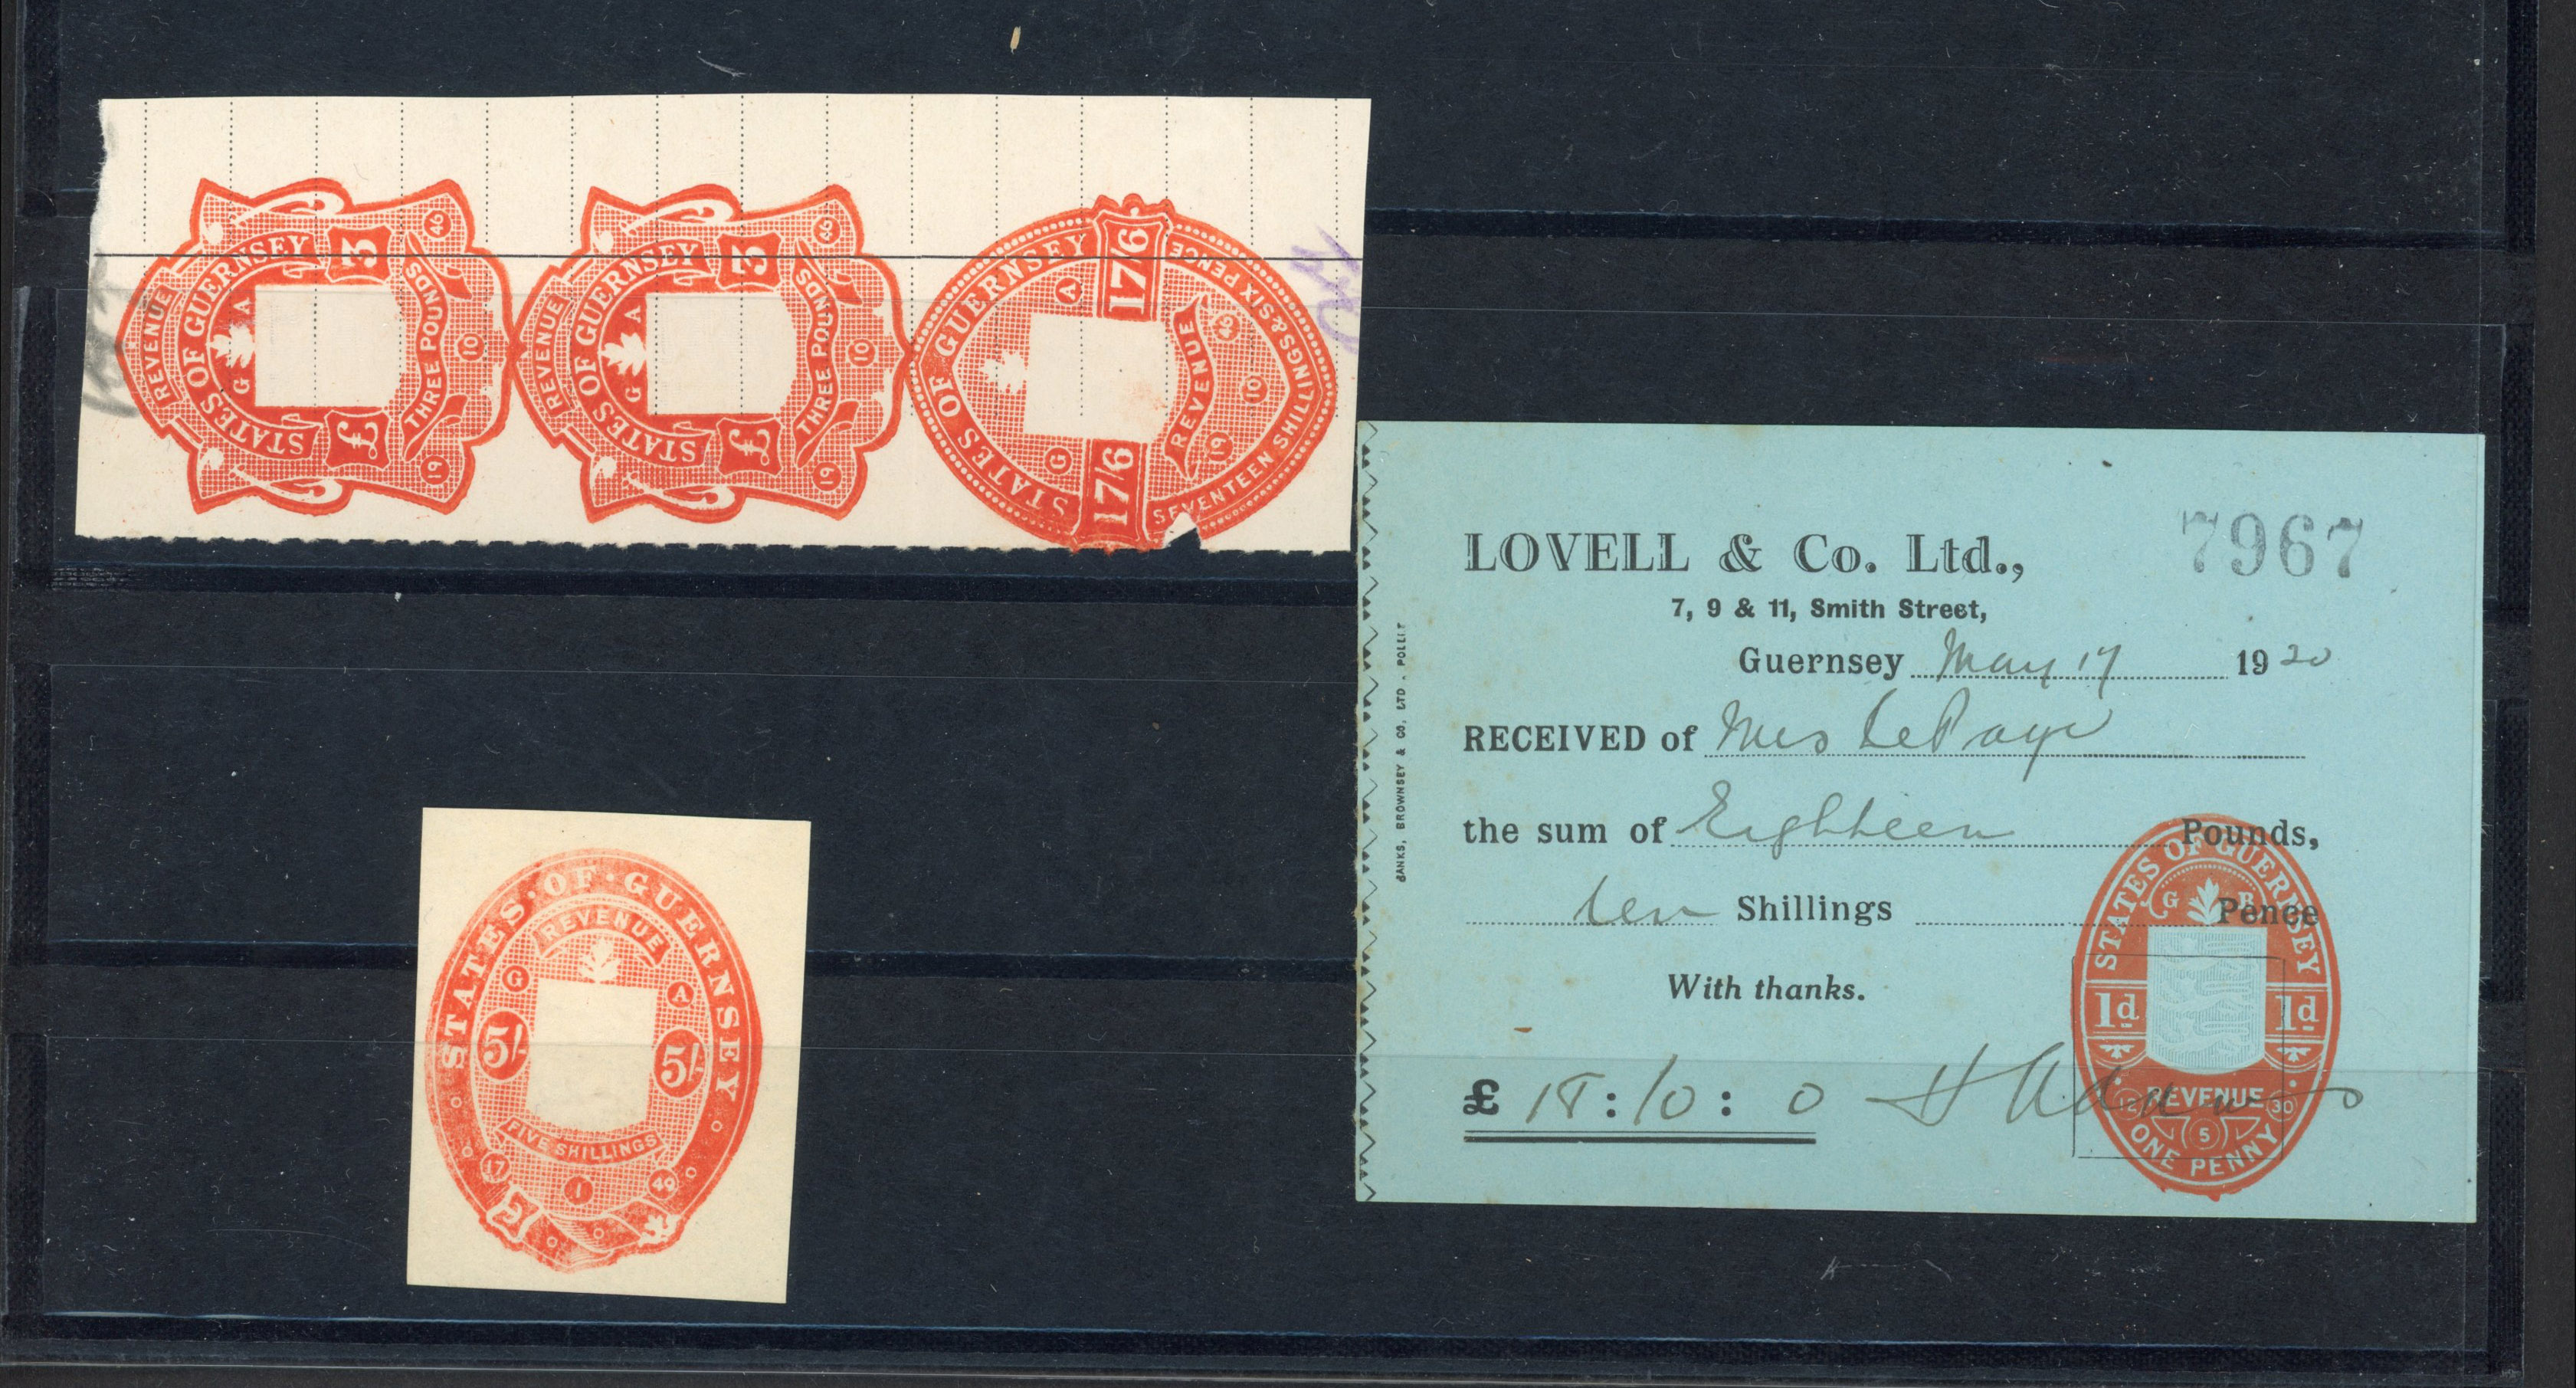 REVENUE
STATES OF GUERNSEY
G A
£ 3
THREE POUNDS
19 10 46
REVENUE
STATES OF GUERNSEY
G A
£ 3
THREE POUNDS
19 10 46
STATES OF GUERNSEY
G A
17/6 17/6
REVENUE
19 10 46
SEVENTEEN SHILLINGS & SIX PENCE
STATES · OF · GUERNSEY
REVENUE
G A
5/- 5/-
FIVE SHILLINGS
17 1 49
BANKS, BROWNSEY & CO. LTD. POLLET
7967
LOVELL & Co. Ltd.,
7, 9 & 11, Smith Street,
Guernsey May 17 1930
RECEIVED of Mrs LePage
the sum of Eighteen Pounds,
ten Shillings Pence
With thanks.
£ 18 : 10 : 0
STATES OF GUERNSEY
G B
1d 1d
REVENUE
12 5 30
ONE PENNY